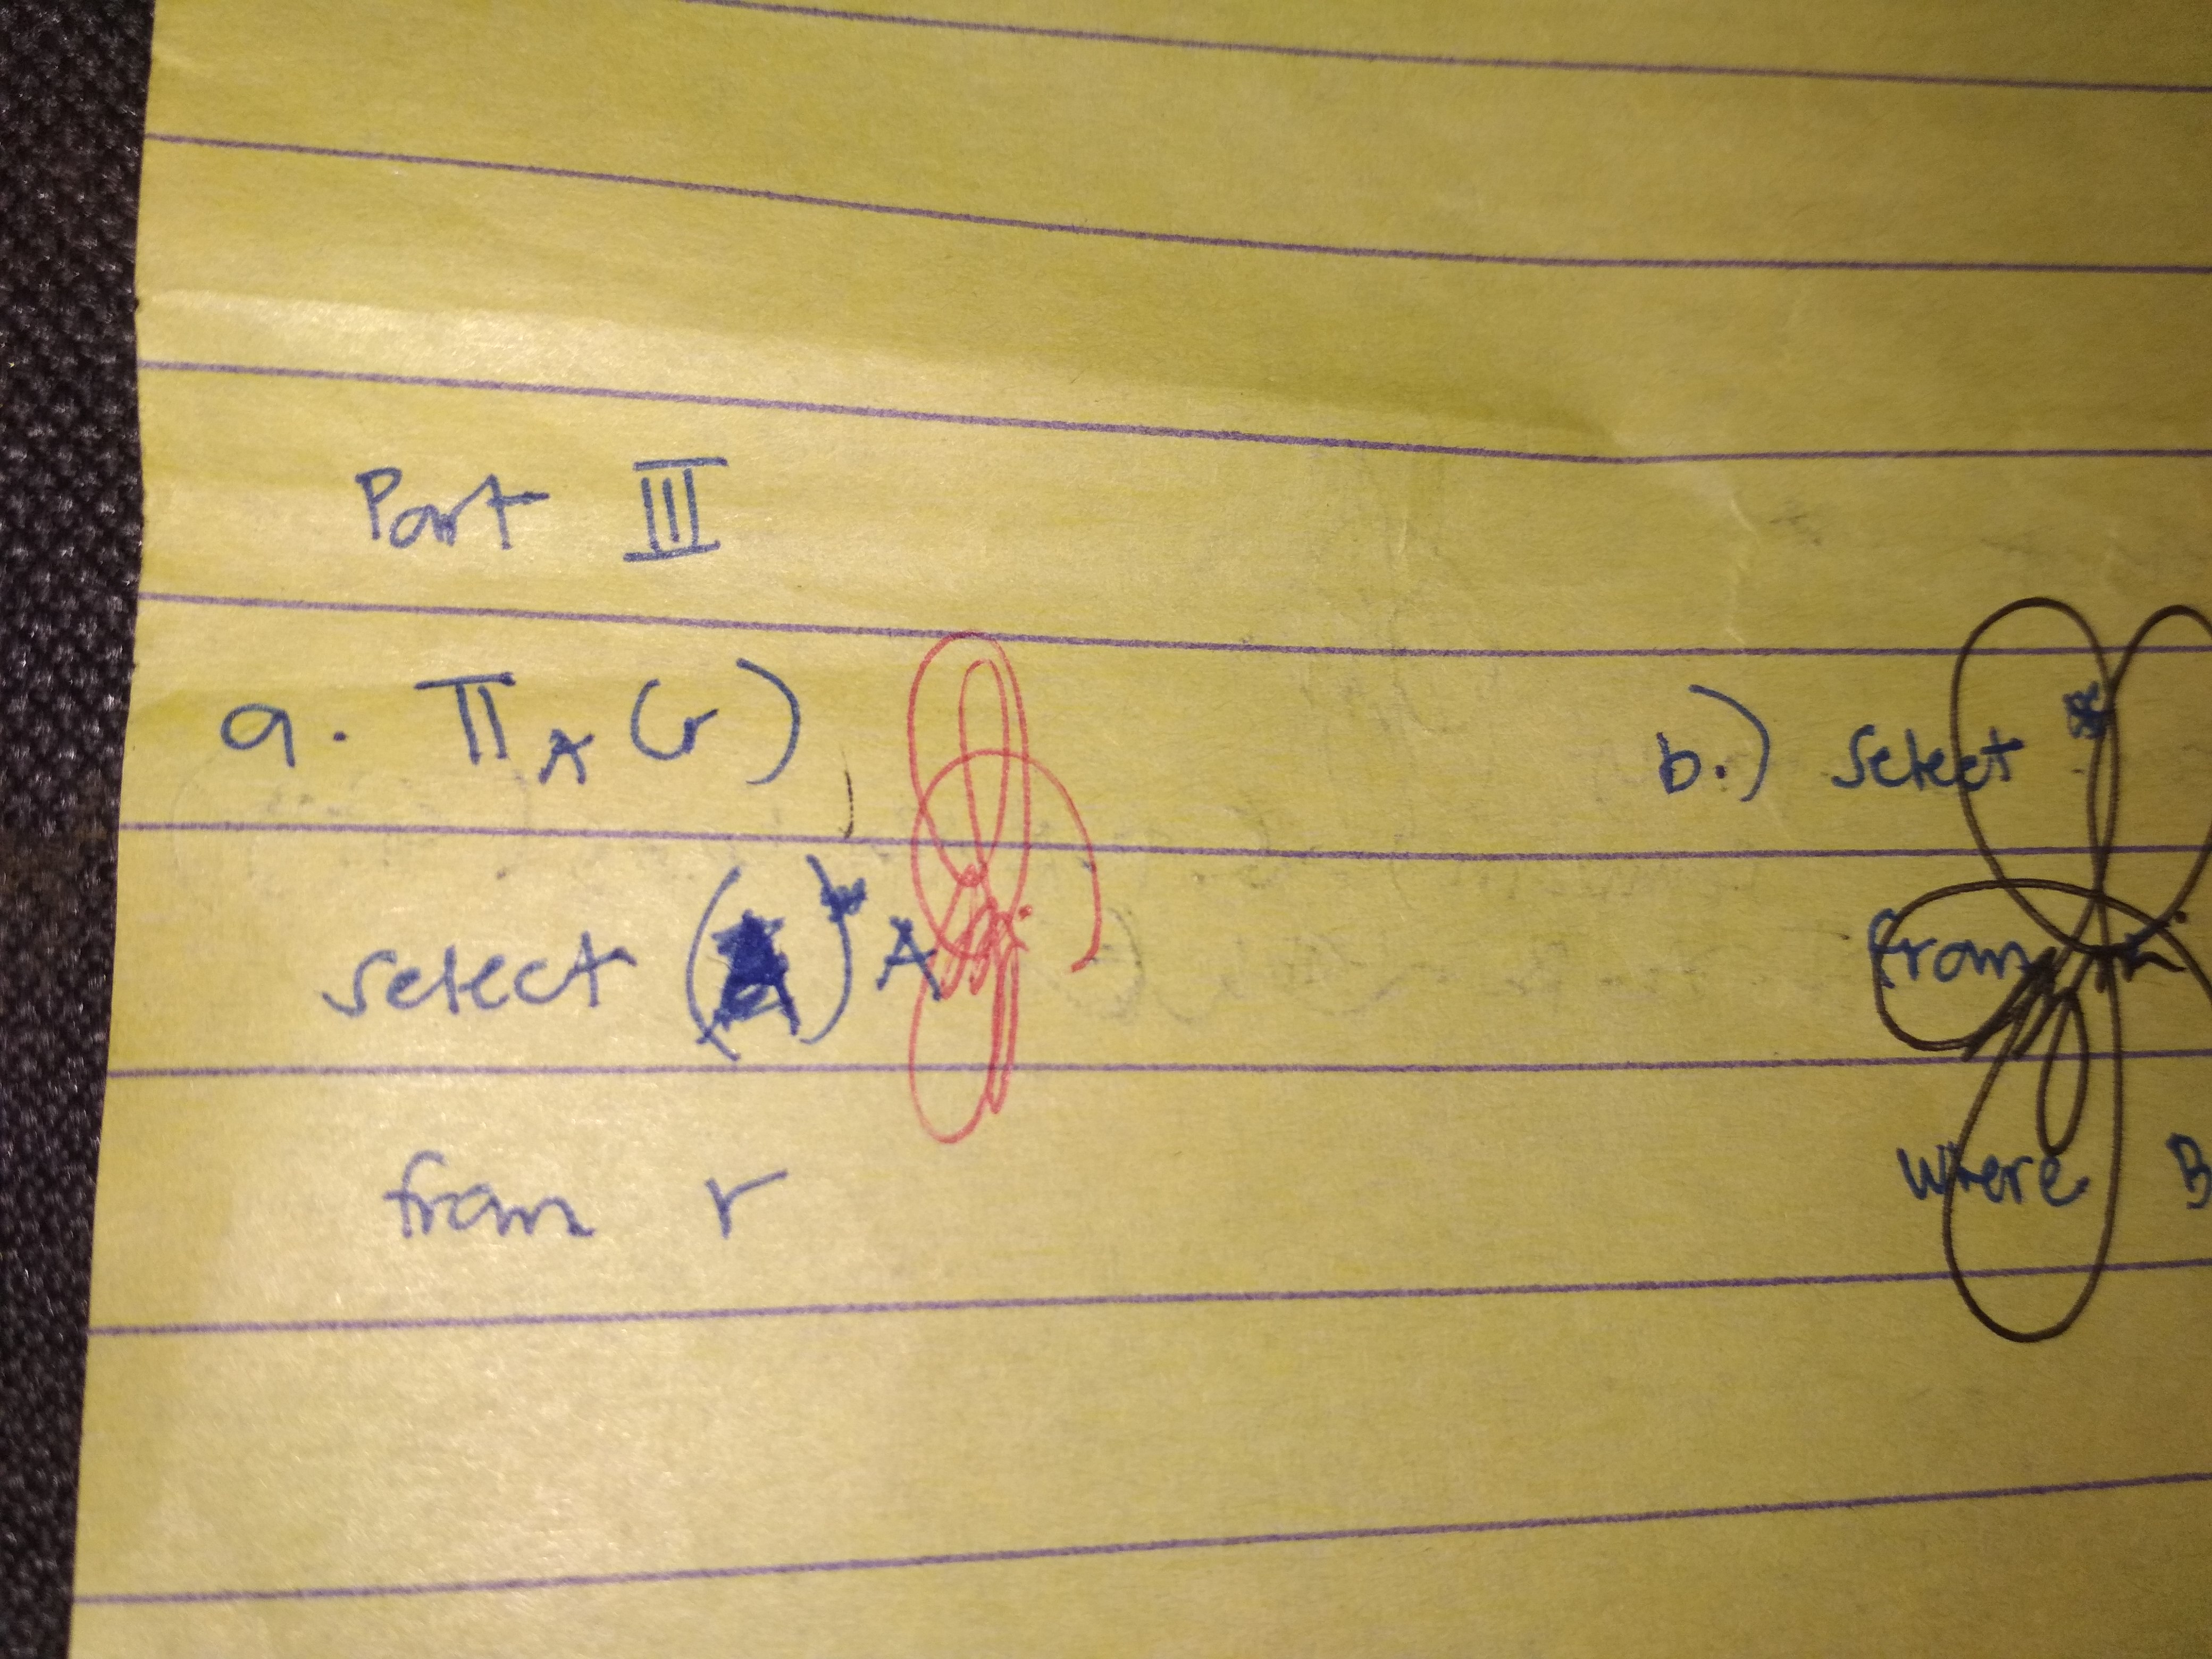 Part III
a. π A (r)
select A
from r
b.) select *
from r
where B